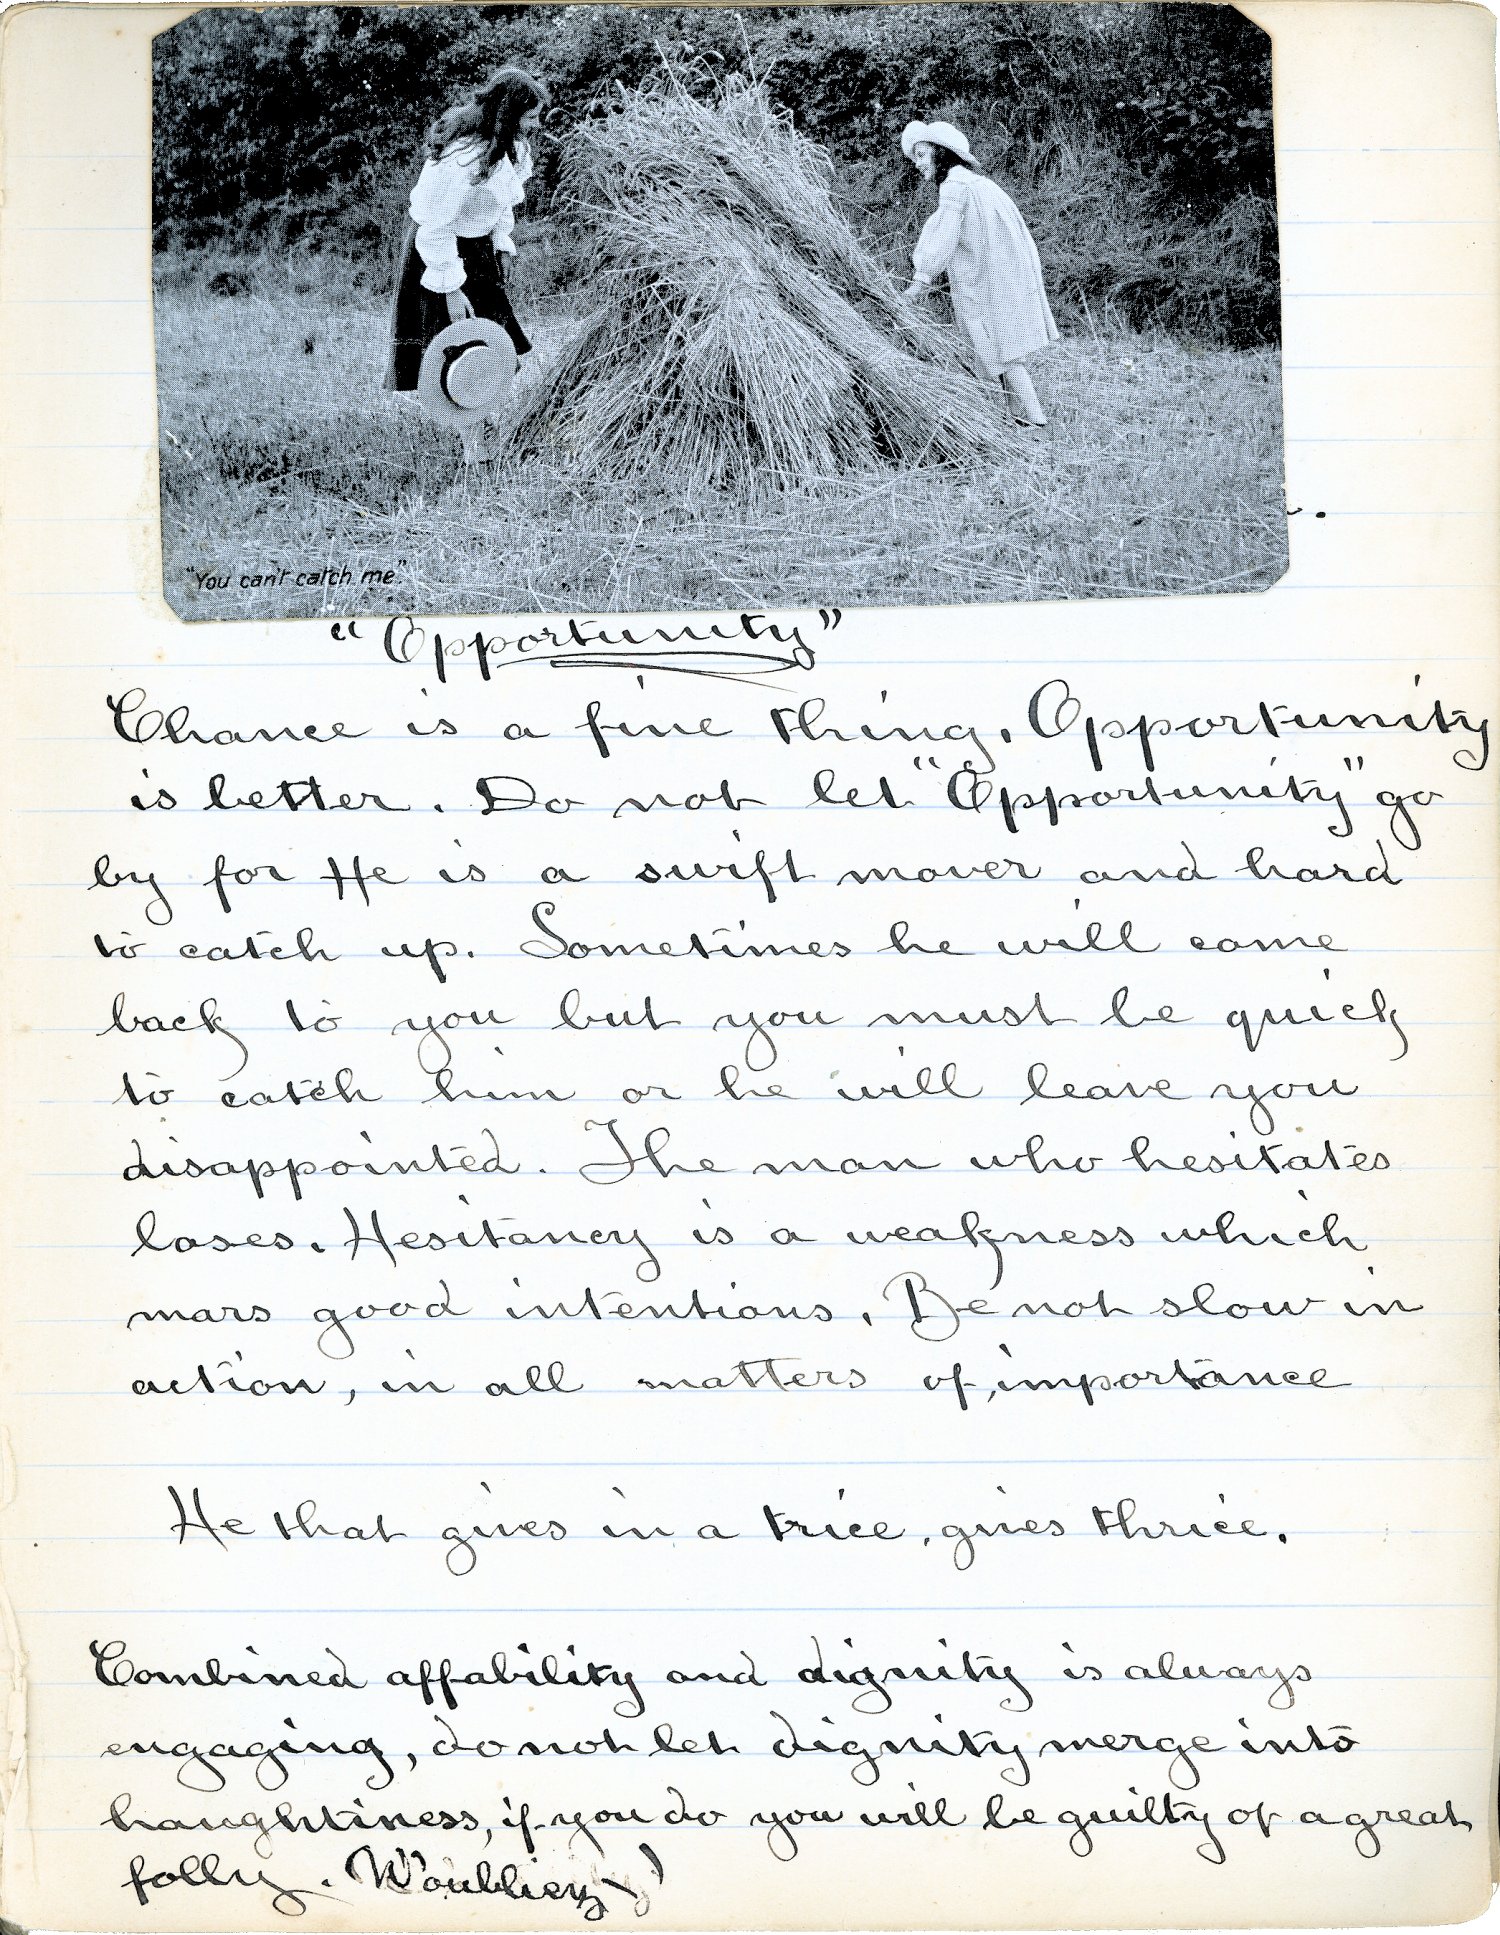 "You can't catch me."
"Opportunity"
Chance is a fine thing. Opportunity
is better. Do not let "Opportunity" go
by for He is a swift mover and hard
to catch up. Sometimes he will come
back to you but you must be quick
to catch him or he will leave you
disappointed. The man who hesitates
loses. Hesitancy is a weakness which
mars good intentions. Be not slow in
action, in all matters of importance
He that gives in a trice, gives thrice.
Combined affability and dignity is always
engaging, do not let dignity merge into
haughtiness, if you do you will be guilty of a great
folly.